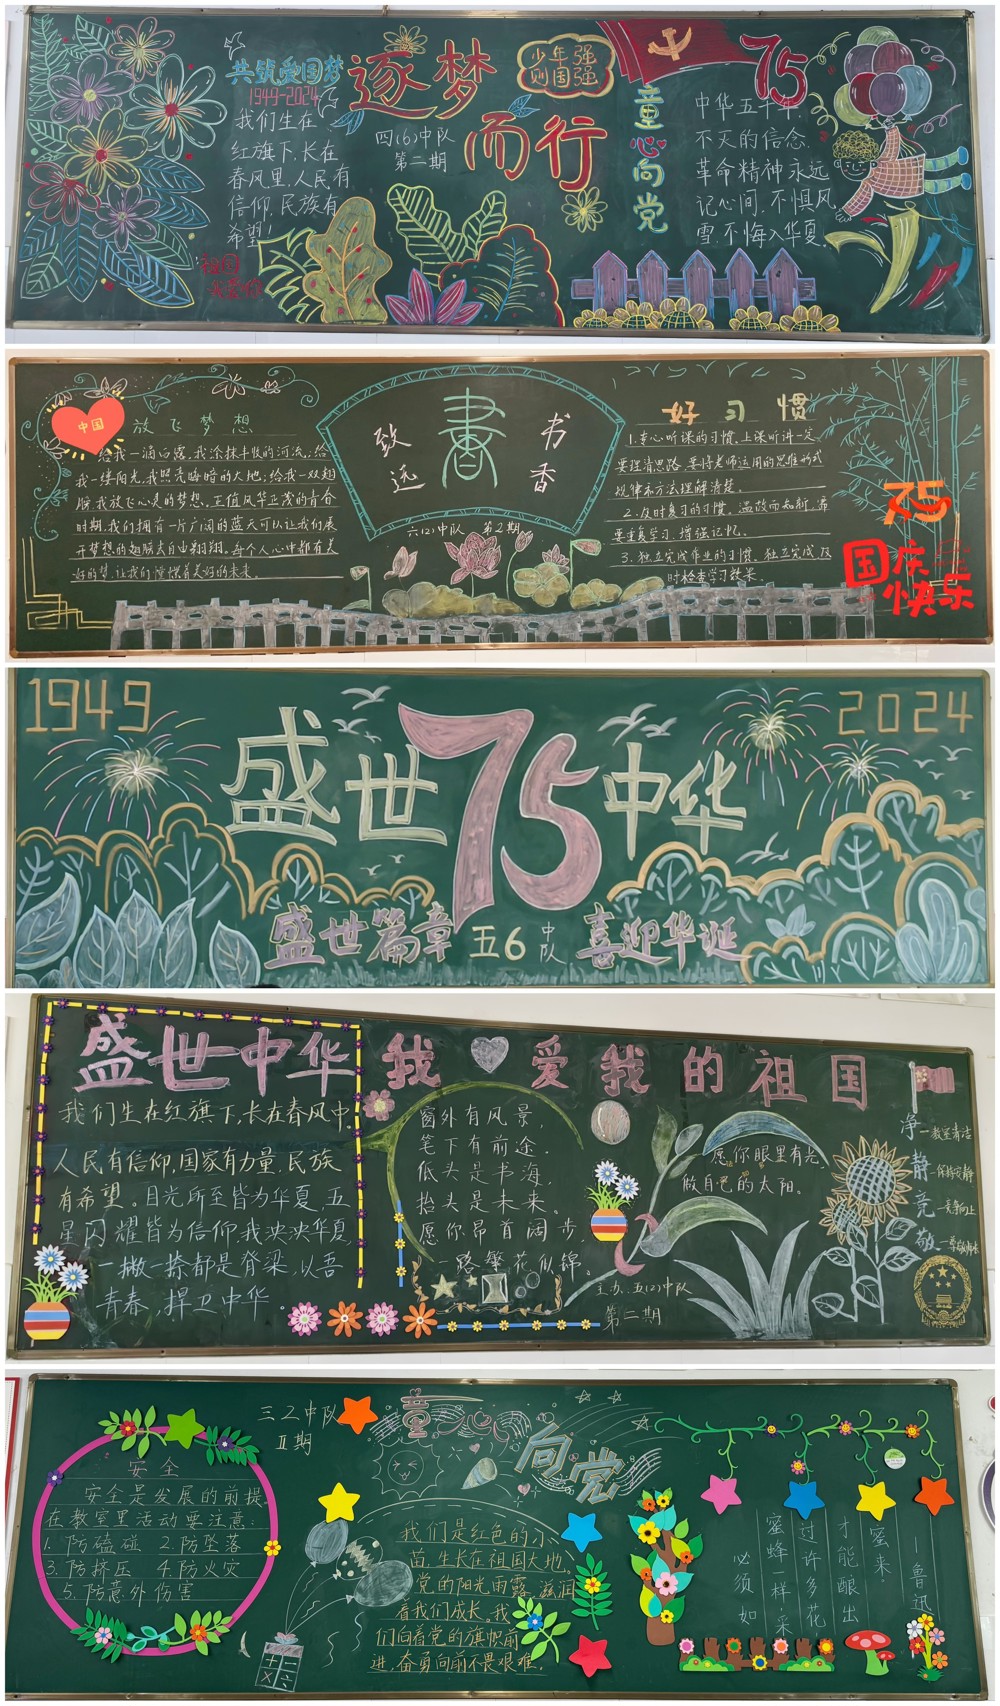 共筑爱国梦
1949-2024
我们生在
红旗下,长在
春风里,人民有
信仰,民族有
希望!
祖国
我爱你
逐梦
而行
四(6)中队
第二期
少年强
则国强
童心向党
75
中华五千年,
不灭的信念,
革命精神永远
记心间,不惧风
雪,不悔入华夏。
中国
放飞梦想
给我一滴白露,我涂抹丰收的河流,给
我一缕阳光,我照亮晦暗的大地;给我一双翅
膀,我放飞心灵的梦想。正值风华正茂的青春
时期,我们拥有一片广阔的蓝天可以让我们展
开梦想的翅膀去自由翱翔。每个人心中都有美
好的梦,让我们憧憬着美好的未来。
致远
書
书香
六(2)中队 第2期
好习惯
1.专心听课的习惯。上课听讲一定
要理清思路。要将老师运用的思维形式
规律和方法理解清楚。
2.及时复习的习惯。温故而知新。需
要重复学习,增强记忆。
3.独立完成作业的习惯。独立完成及
时检查学习效果。
75
国庆
快乐
1949
2024
盛世75中华
盛世篇章
五6中队
喜迎华诞
盛世中华
我们生在红旗下,长在春风中。
人民有信仰,国家有力量,民族
有希望。目光所至皆为华夏,五
星闪耀皆为信仰,我泱泱华夏,
一撇一捺都是脊梁,以吾
青春,捍卫中华。
我爱我的祖国
窗外有风景,
笔下有前途,
低头是书海,
抬头是未来。
愿你昂首阔步,
一路繁花似锦。
愿你眼里有光,
做自己的太阳。
主办:五(2)中队
第二期
净—教室清洁
静—保持安静
竞—竞争向上
敬
三2中队
Ⅱ期
童心
向党
安全
安全是发展的前提,
在教室里活动要注意:
1.防磕碰 2.防坠落
3.防挤压 4.防火灾
5.防意外伤害
我们是红色的小
苗,生长在祖国大地。
党的阳光雨露,滋润
着我们成长。我
们向着党的旗帜前
进,奋勇向前不畏艰难。
必须如
蜜蜂一样,采
过许多花
才能酿出
蜜来。
——鲁迅